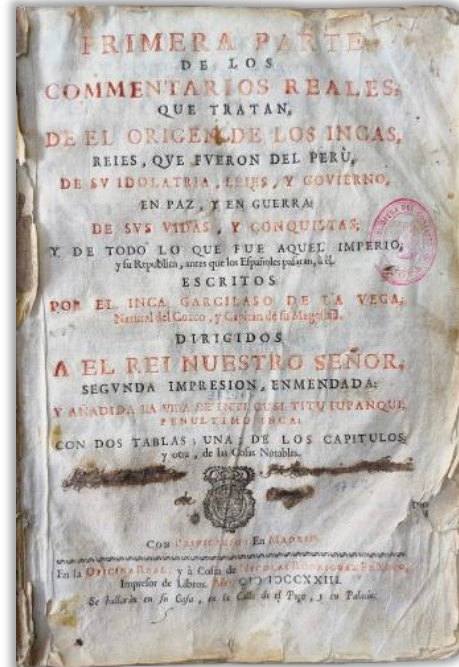 PRIMERA PARTE
DE LOS
COMMENTARIOS REALES,
QUE TRATAN,
DE EL ORIGEN DE LOS INCAS,
REIES, QVE FVERON DEL PERÙ,
DE SV IDOLATRIA, LEIES, Y GOVIERNO,
EN PAZ, Y EN GUERRA:
DE SVS VIDAS, Y CONQUISTAS;
Y DE TODO LO QUE FUE AQUEL IMPERIO,
y su Republica, antes que los Españoles pasaran, à èl.
ESCRITOS
POR EL INCA GARCILASO DE LA VEGA;
Natural del Cozco, y Capitan de su Magestad.
DIRIGIDOS
A EL REI NUESTRO SEÑOR.
SEGVNDA IMPRESION, ENMENDADA:
Y AÑADIDA LA VIDA DE INTI CUSI TITU IUPANQUI,
PENULTIMO INCA:
CON DOS TABLAS; UNA, DE LOS CAPITULOS,
y otra, de las Cosas Notables.
de
CON PRIVILEGIO: En MADRID.
En la OFICINA REAL, y à Costa de NICOLAS RODRIGUEZ FRANCO,
Impresor de Libros. Año CIƆ IƆCCXXIII.
Se hallaràn en su Casa, en la Calle de el Poço, y en Palacio.